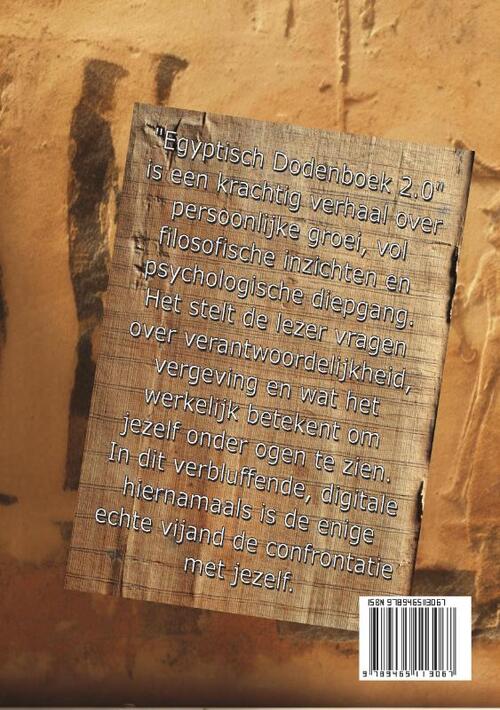 "Egyptisch Dodenboek 2.0"
is een krachtig verhaal over
persoonlijke groei, vol
filosofische inzichten en
psychologische diepgang.
Het stelt de lezer vragen
over verantwoordelijkheid,
vergeving en wat het
werkelijk betekent om
jezelf onder ogen te zien.
In dit verbluffende, digitale
hiernamaals is de enige
echte vijand de confrontatie
met jezelf.
ISBN 9789465113067
9 789465 113067